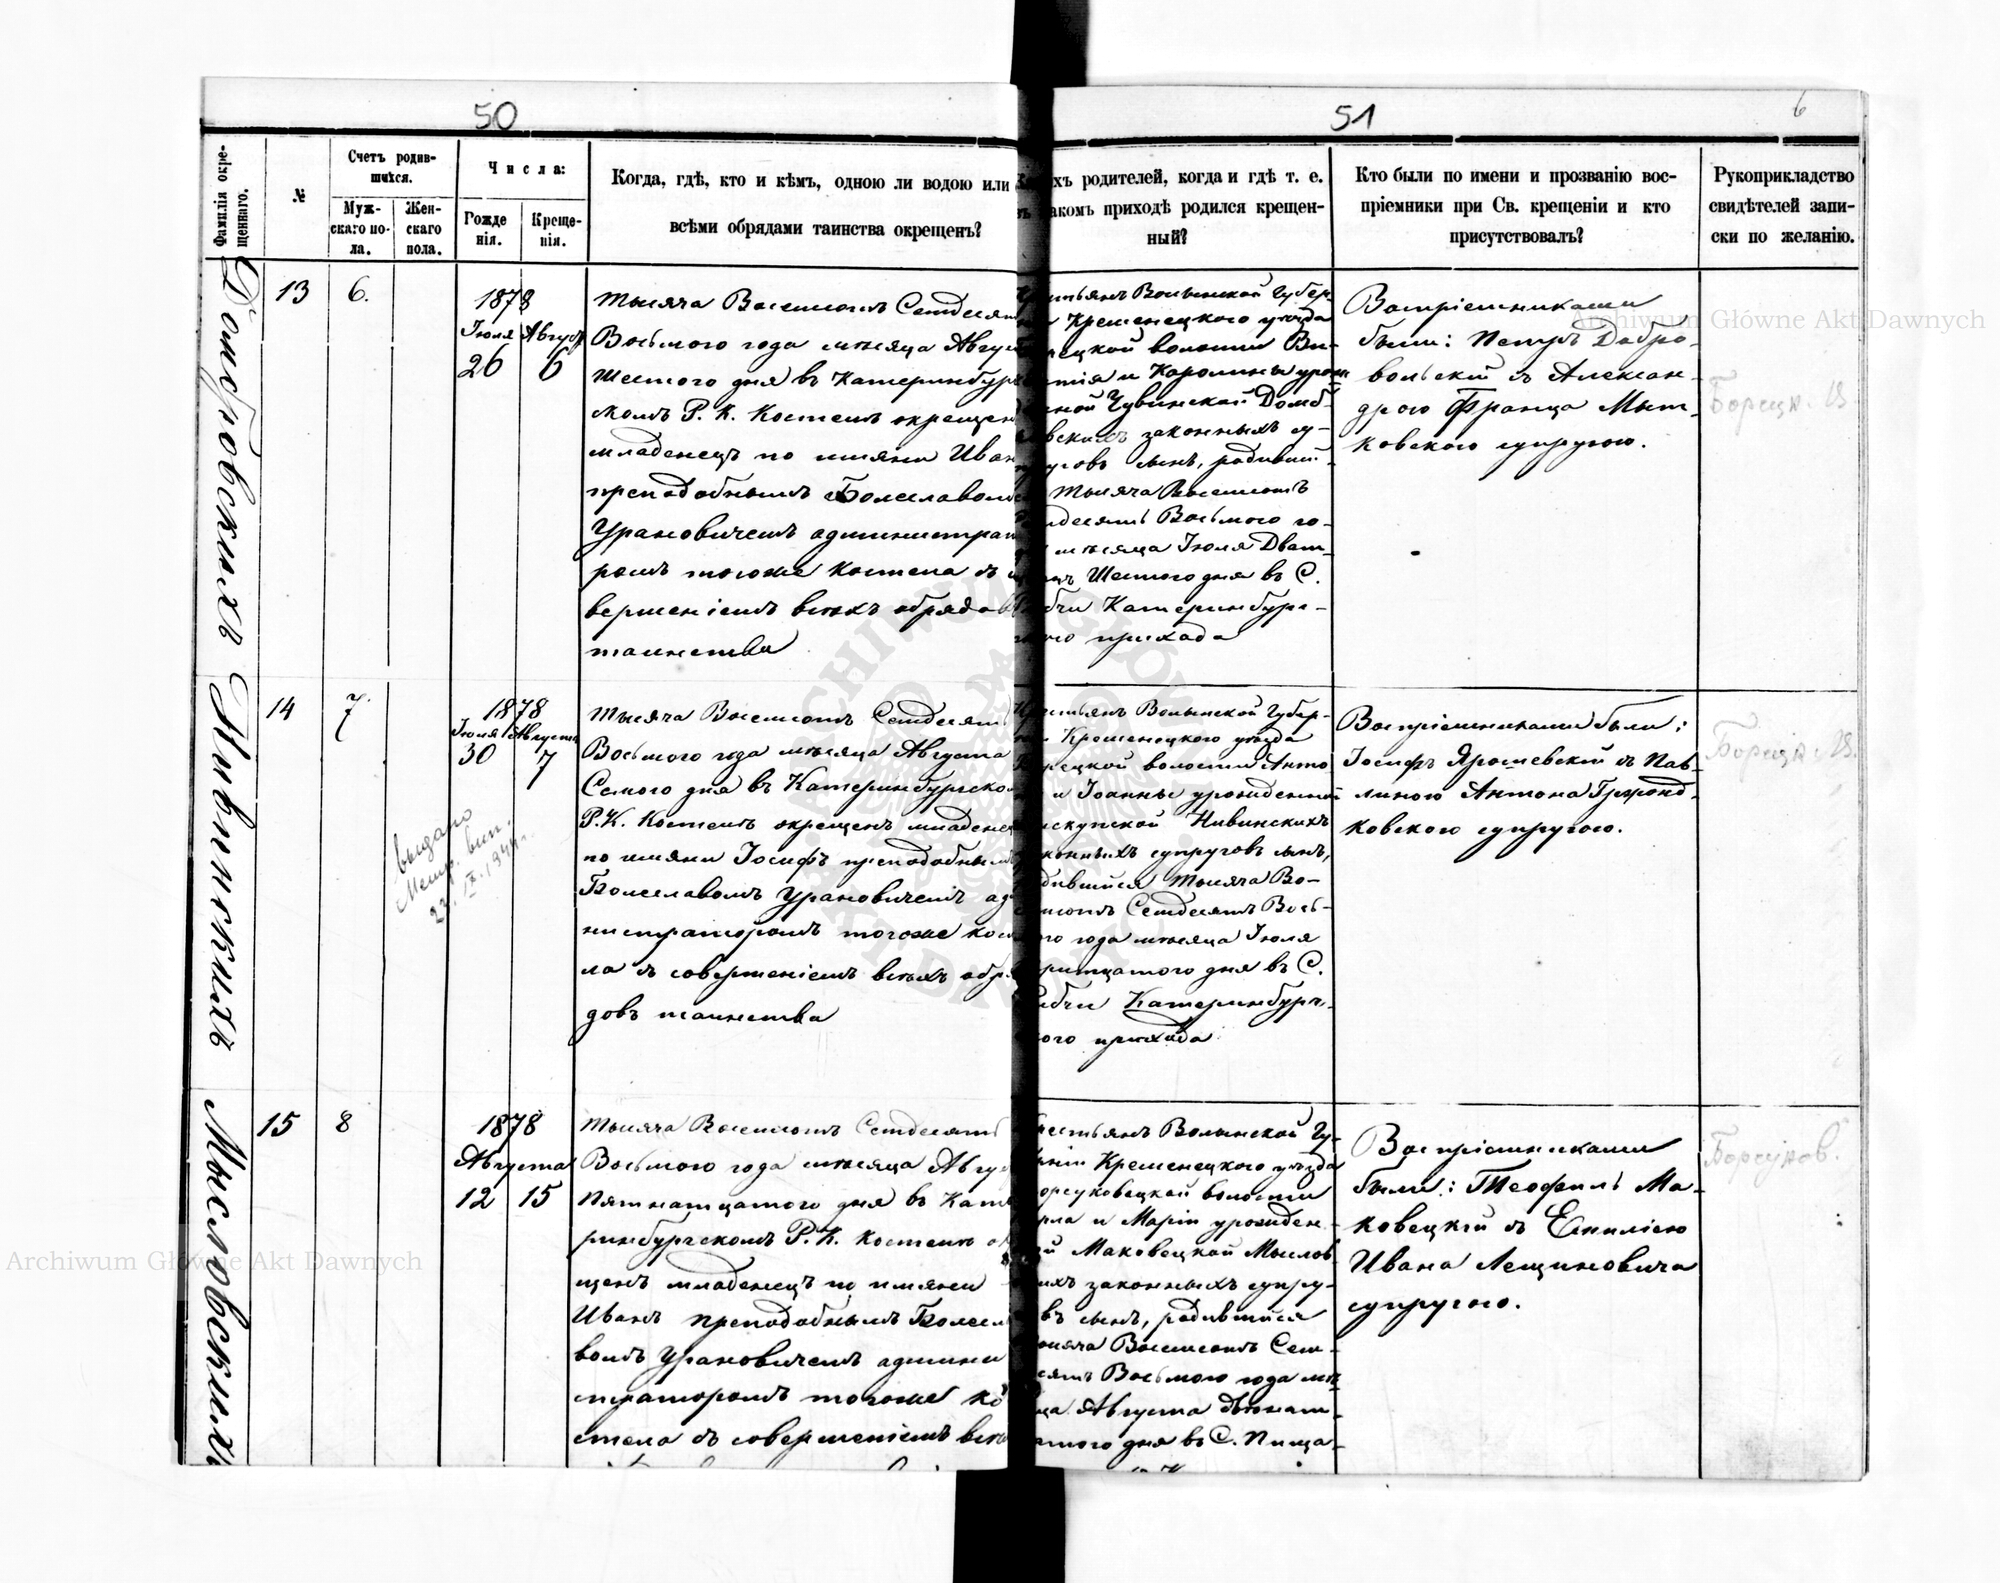 50
51
6
Фамилія окрещеннаго.
№
Счетъ родившихся.
Мужскаго пола.
Женскаго пола.
Числа:
Рожденія.
Крещенія.
Когда, гдѣ, кто и кѣмъ, одною ли водою или
всѣми обрядами таинства окрещенъ?
хъ родителей, когда и гдѣ т. е.
акомъ приходѣ родился крещен-
ный?
Кто были по имени и прозванію вос-
пріемники при Св. крещеніи и кто
присутствовалъ?
Рукоприкладство
свидѣтелей запи-
ски по желанію.
Домбровскихъ
13
6.
1878
Іюля Август
26 6
Тысяча Восемсотъ Семдесят
Восьмого года мѣсяца Авгус
Шестого дня въ Катеринбург
скомъ Р. К. Костелѣ окрещен
младенецъ по имяни Иван
преподобнымъ Болеславом
Урановичемъ администрат
ромъ тогоже Костела съ
вершеніемъ всѣхъ обрядов
таинства
Волынской Губер-
Кременецкого уѣзда
рецкой волости Ви-
тія и Каролины урож
ной Чувинской Домб-
вскихъ законныхъ су-
уговъ сынъ, родивший-
Тысяча Восемсотъ
мдесятъ Восьмого го-
мѣсяца Іюля Двад-
Шестого дня въ С.
бчи Катеринбург-
ого прихода
Воспріемниками
были: Петръ Добро-
вольскій съ Алексан-
дрою Франца Мыт-
ковского супругою.
Нивинскихъ
14
7.
1878
Іюля Августа
30 7
выдано
Метр. вып.
Тысяча Восемсотъ Семдесятъ
Восьмого года мѣсяца Августа
Семого дня въ Катеринбургско
Р. К. Костелѣ окрещенъ младенец
по имяни Іосифъ преподобным
Болеславомъ Урановичемъ ад
нистраторомъ тогоже кос
ла съ совершеніемъ всѣхъ обря
довъ таинства
стьянъ Волынской Губер-
Кременецкого уѣзда
рецкой волости Анто
и Іоанны урожденной
искупской Нивинскихъ
конныхъ супруговъ сынъ,
дившійся Тысяча Во-
мсотъ Семдесятъ Вось-
го года мѣсяца Іюля
ритцатого дня въ С.
бчи Катеринбург-
кого прихода
Воспріемниками были:
Іосифъ Ярошевскій съ Пав-
линою Антона
ковского супругою.
Мысловскихъ
15
8
1878
Августа
12 15
Тысяча Восемсотъ Семдесятъ
Восьмого года мѣсяца Авгус
Пятнатцатого дня въ Кате
ринбургскомъ Р. К. Костелѣ ок
щенъ младенецъ по имяни
Иванъ преподобнымъ Болесл
вомъ Урановичемъ админи
страторомъ тогоже ко
стела съ совершеніемъ всѣ
рестьянъ Волынской Гу-
рніи Кременецкого уѣзда
орсуковецкой волости
рла и Маріи урожден-
й Маковецкой Мыслов
ихъ законныхъ супру-
въ сынъ, родившійся
ысяча Восемсотъ Сем-
сятъ Восьмого года мѣ-
ца Августа двѣнат-
атого дня въ С. Пища-
Воспріемниками
были: Теофиль Ма-
ковецкій съ Емиліею
Ивана Лещиновича
супругою.
Борсуков.
Archiwum Główne Akt Dawnych
Archiwum Główne Akt Dawnych
ARCHIWUM GŁÓWNE AKT DAWNYCH